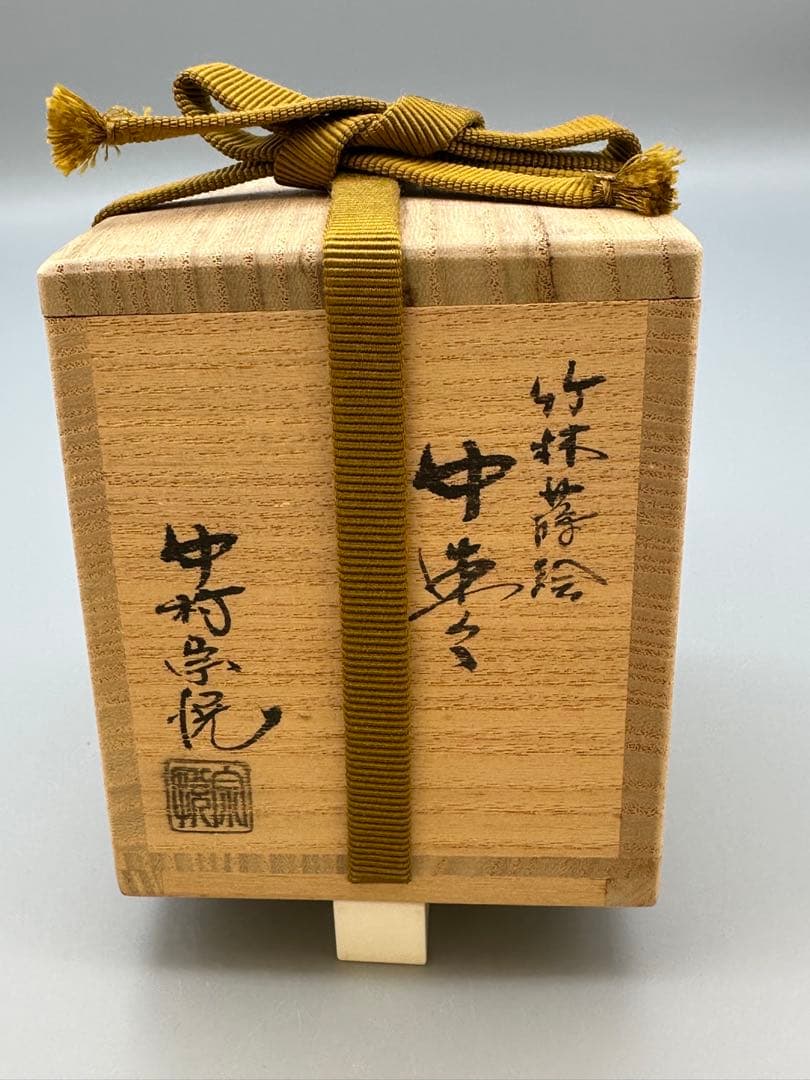 竹林蒔絵
中棗
中村宗悦
宗悦